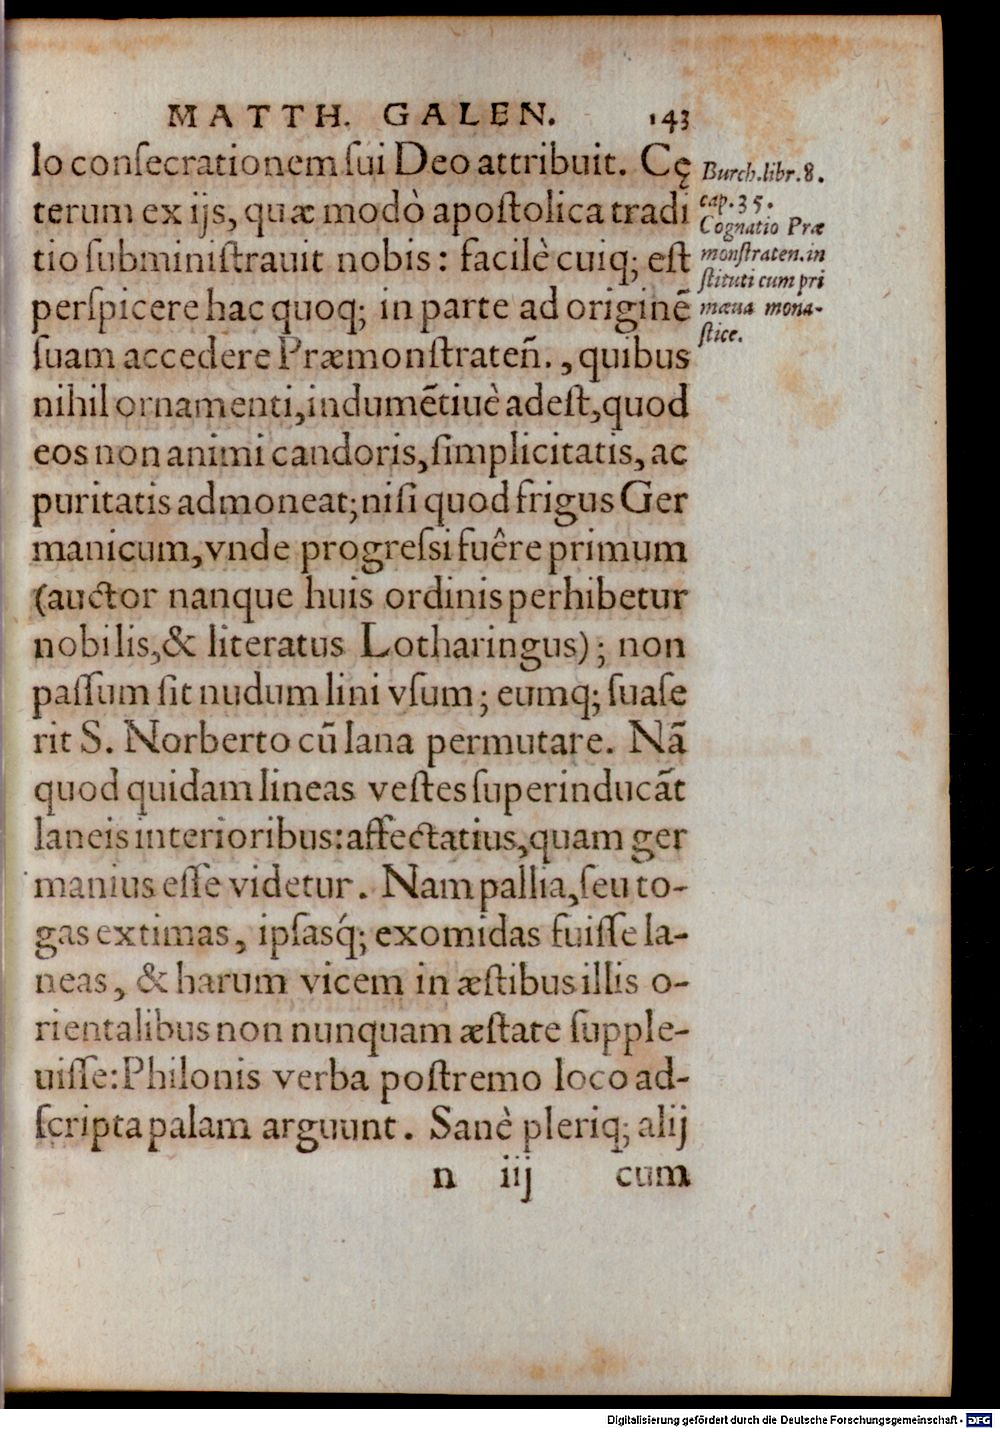 MATTH. GALEN. 143
lo conſecrationem ſui Deo attribuit. Cę
terum ex ijs, quæ modò apoſtolica tradi
tio ſubminiſtrauit nobis: facilè cuiq; eſt
perſpicere hac quoq; in parte ad originẽ
ſuam accedere Præmonſtrateñ., quibus
nihil ornamenti, indumẽtiuè adeſt, quod
eos non animi candoris, ſimplicitatis, ac
puritatis admoneat; niſi quod frigus Ger
manicum, vnde progreſsi fuêre primum
(auctor nanque huis ordinis perhibetur
nobilis, & literatus Lotharingus); non
paſſum ſit nudum lini vſum; eumq; ſuaſe
rit S. Norberto cũ lana permutare. Nã
quod quidam lineas veſtes ſuperinducãt
laneis interioribus: affectatius, quam ger
manius eſſe videtur. Nam pallia, ſeu to-
gas extimas, ipſasq́; exomidas fuiſſe la-
neas, & harum vicem in æſtibus illis o-
rientalibus non nunquam æſtate ſupple-
uiſſe: Philonis verba poſtremo loco ad-
ſcripta palam arguunt. Sanè pleriq; alij
n iij cum
Burch. libr. 8.
cap. 35.
Cognatio Præ
monſtraten. in
ſtituti cum pri
mæua mona-
ſtice.
Digitalisierung gefördert durch die Deutsche Forschungsgemeinschaft - DFG